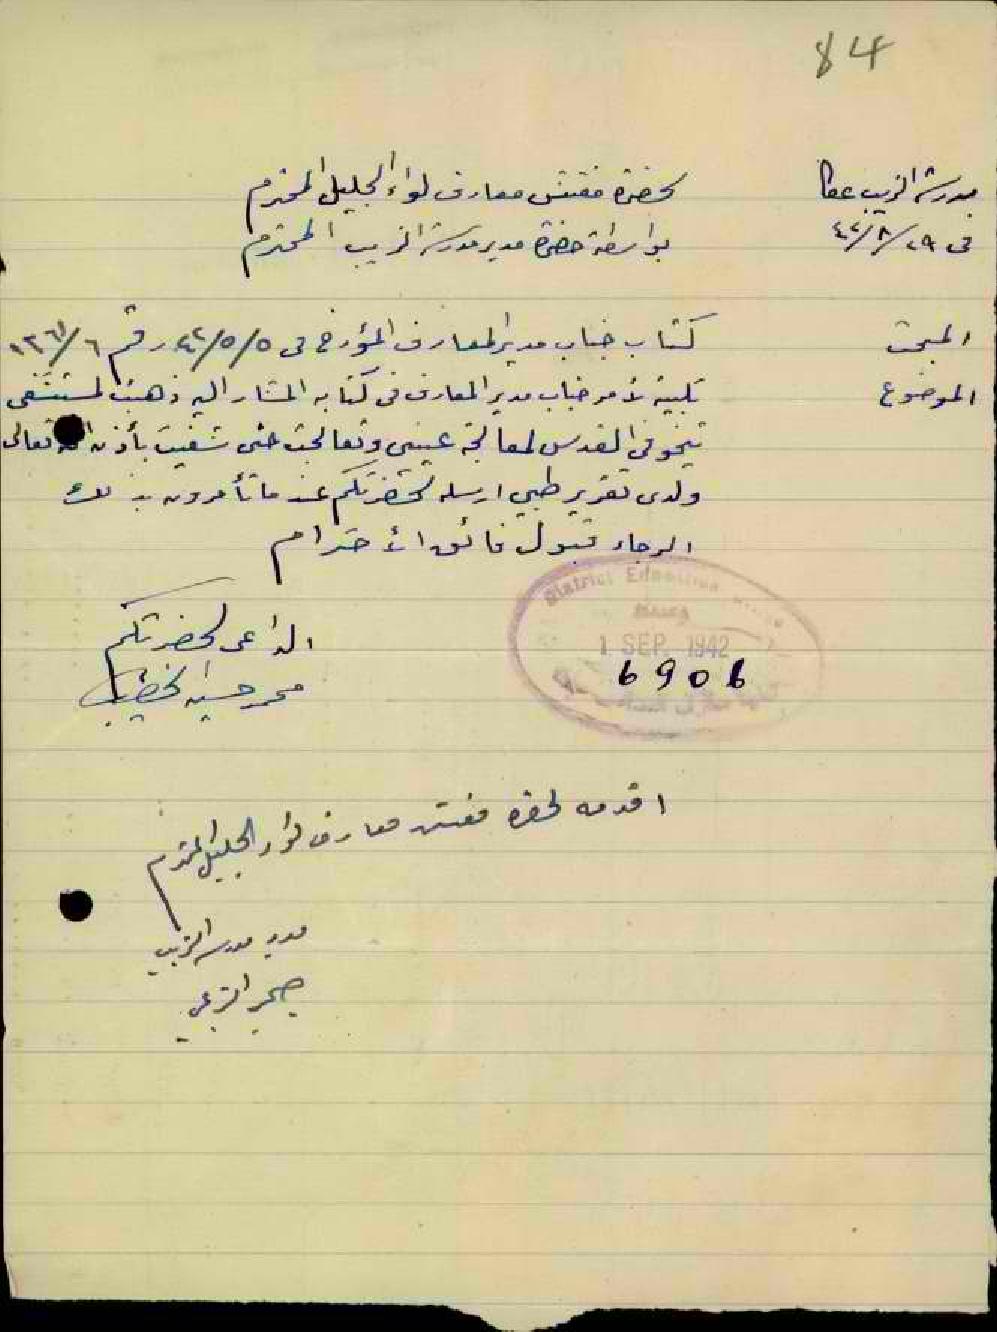 84
مدرسة الزيب عكا
في ٢٩/٨/٤٢
لحضرة مفتش معارف لواء الجليل المحترم
بواسطة حضرة مدير مدرسة الزيب المحترم
المبحث كتاب جناب مدير المعارف المؤرخ في ٥/٥/٤٢ رقم ٦/١٣٦١
الموضوع تلبية لأمر جناب مدير المعارف في كتابه المشار اليه ذهبت لمستشفى
تيخو في القدس لمعالجة عيني وتعالجت حتى شفيت بأذن الله تعالى
ولدى تقرير طبي ارسله لحضرتكم عندما تأمرون بذلك
الرجاء قبول فائق الأحترام
District Education
1 SEP. 1942
6906
الداعي لحضرتكم
محمد حسين الخطيب
اقدمه لحضرة مفتش معارف لواء الجليل المحترم
مدير مدرسة الزيب